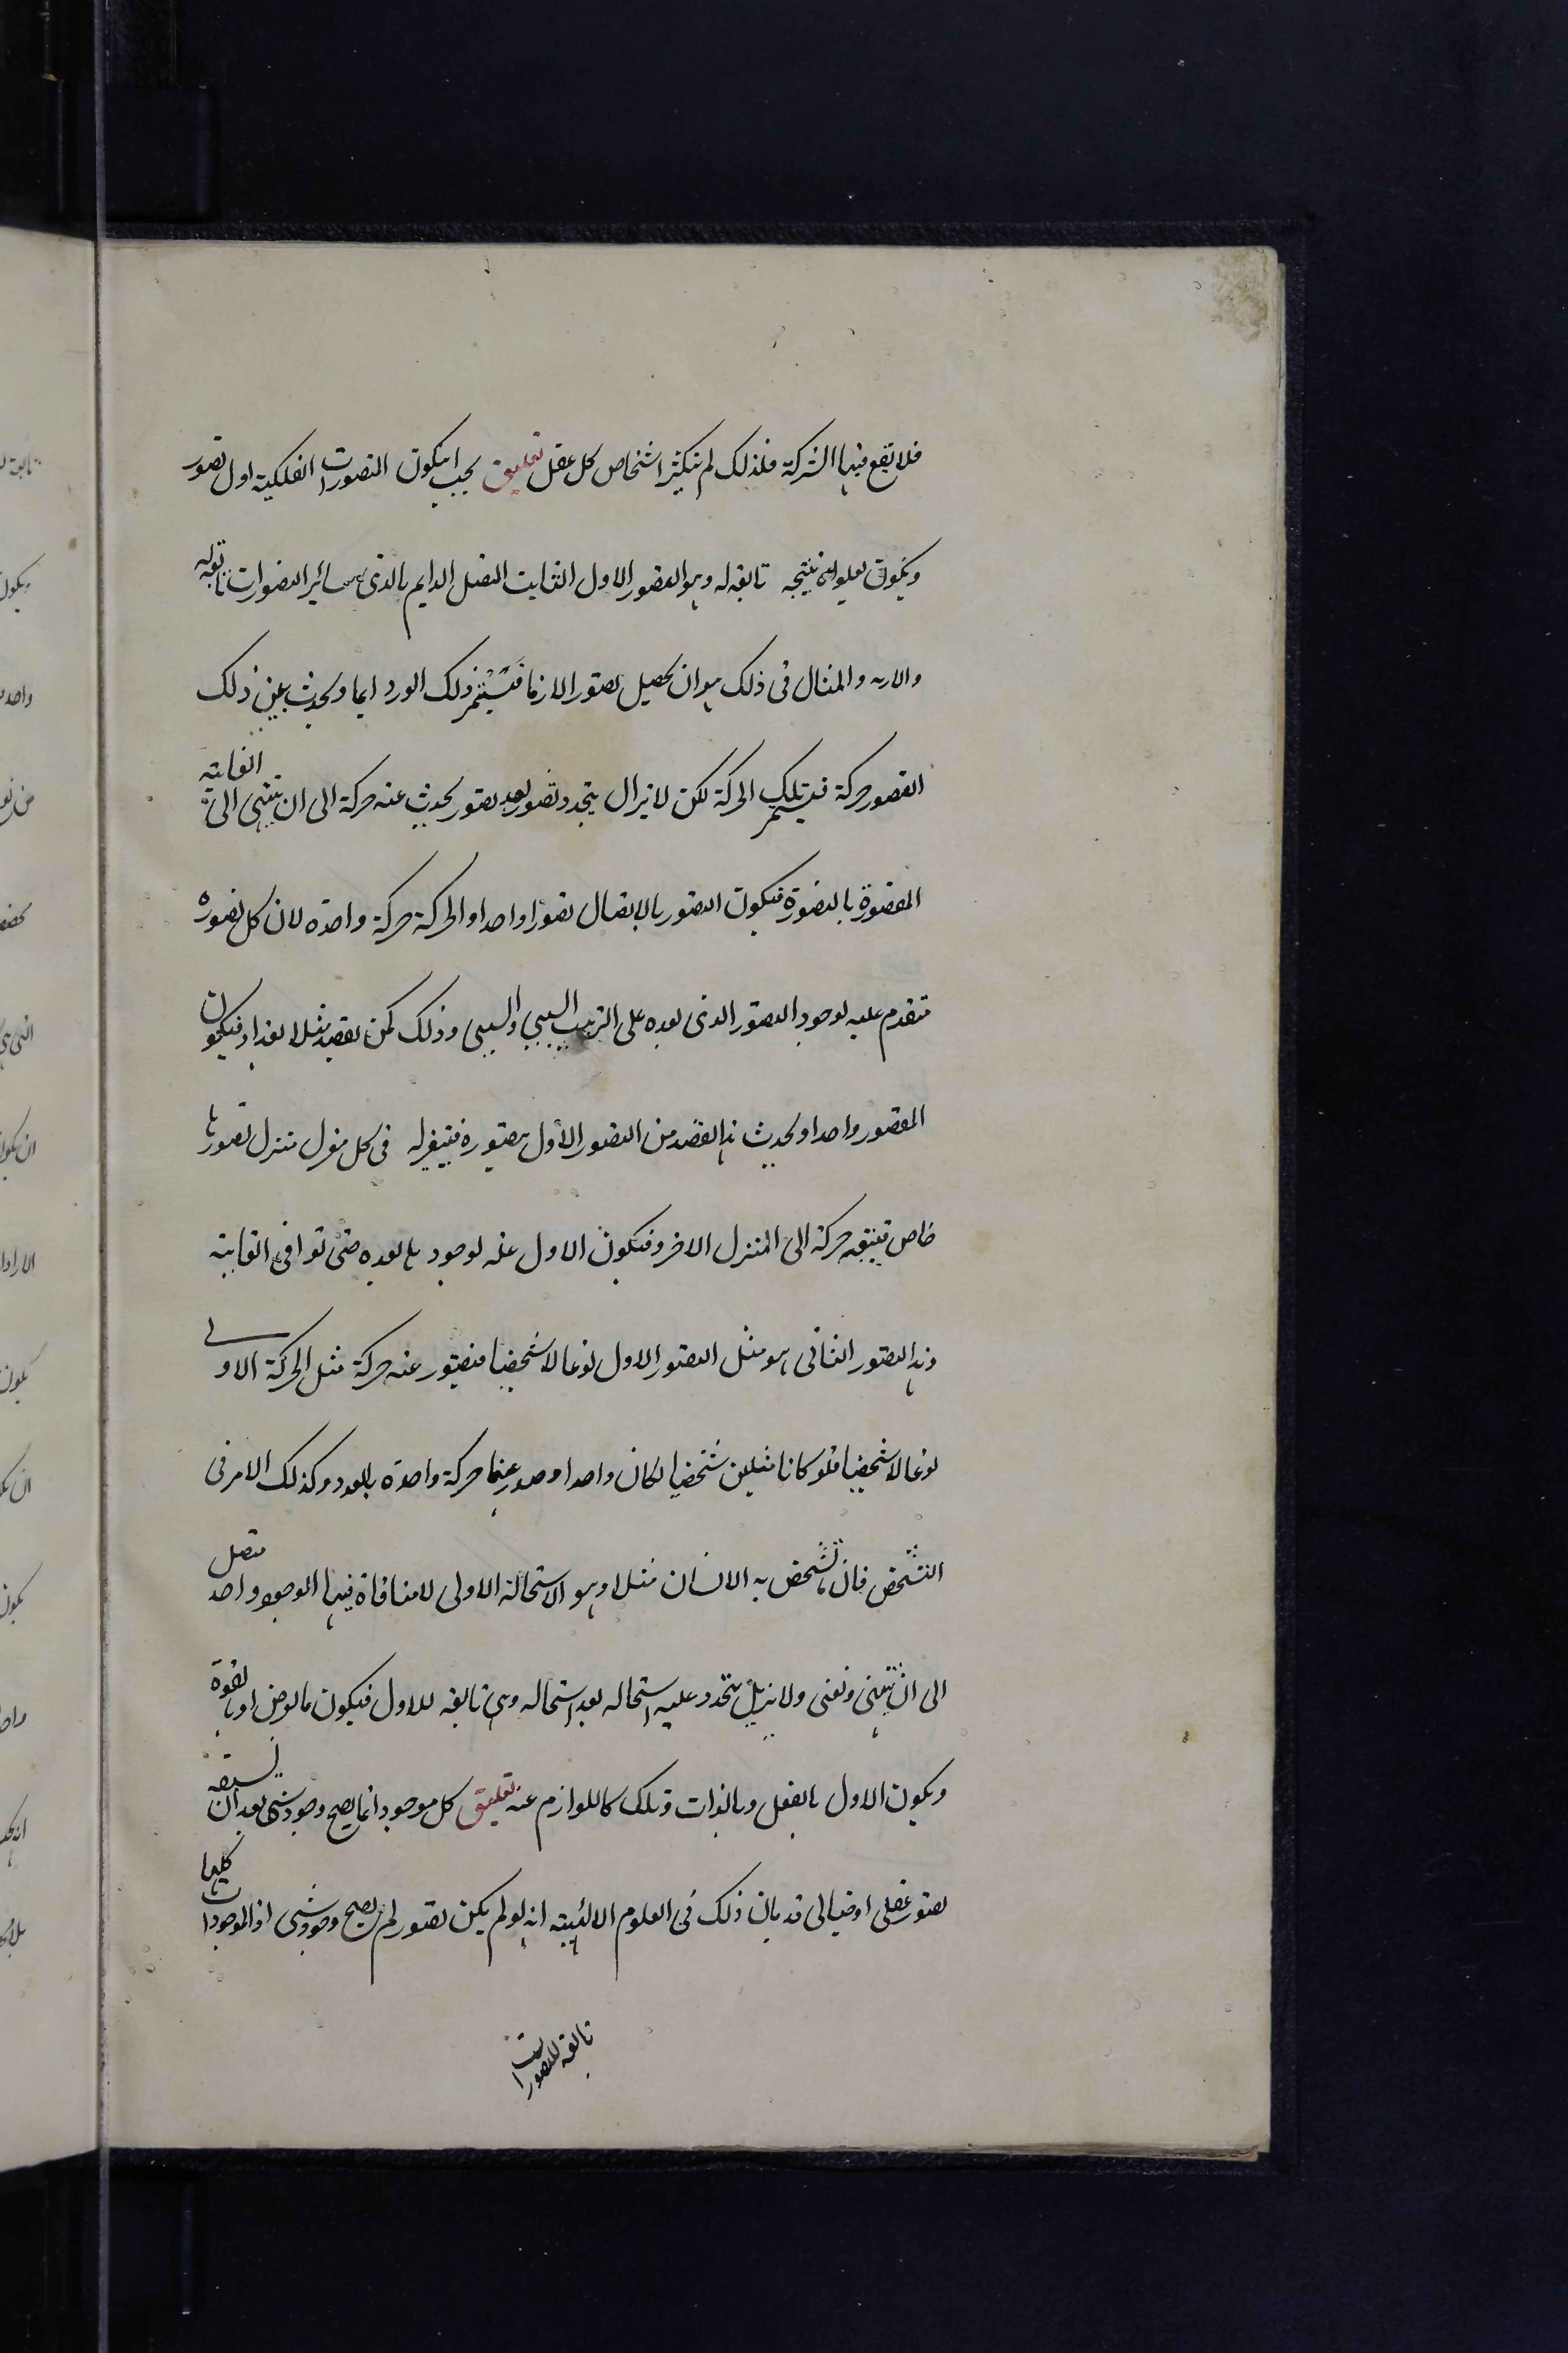 فلا يقع فيها الشركة فلذلك لم يتكثر اشخاص كل عقل تعليق يجب ان يكون التصورات الفلكية اول تصور
ويكون نتيجة تابعة له وهو التصور الاول الثابت المتصل الدايم بالذى سائر التصورات تابعة
والمثال فى ذلك هو ان يحصل تصور الازما فيستمر ذلك ايما ويحدث عن ذلك
التصور حركة فيستمر تلك الحركة لكن لا يزال يتجدد تصور بعد تصور يحدث عنه حركة الى ان ينتهى الى الغاية
المقصودة بالتصور فيكون التصور بالاتصال تصورا واحدا والحركة حركة واحدة لان كل تصوره
متقدم عليه لوجود التصور الذى بعده على الترتيب السببى والمسببى وذلك كمن يقصد مثلا بغداد فيكون
المقصور واحدا ويحدث هذا القصد من التصور الاول فى كل منزل منزل تصورها
خاص فيتبعه حركة الى المنزل الاخر وفيكون الاول علة لوجود ما بعده حتى توافى الغاية
وهذا التصور الثانى هو مثل التصور الاول نوعا لا شخصيا فيتصور عنه حركة مثل الحركة الاولى
نوعا لا شخصيا فلو كانا مثلين شخصيا لكان واحدا وصدر عنهما حركة واحدة بالعدد وكذلك الامر فى
التشخص فان ما تشخص به الانسان مثلا وهو الاستحالة الاولى لا منافاة فيها الوجود واحد متصل
الى ان ينتهى ويفنى ولا يزال يتجدد عليه استحاله بعد استحاله وهى تابعه للاول فيكون بالعرض او بالقوة
ويكون الاول بالفعل وبالذات وتلك كاللوازم عنه تعليق كل موجود انما يصح وجود شى بعد ان يسبقه
تصور عقلى او خيالى قد بان ذلك فى العلوم الالهية انه لو لم يكن تصور لم يصح وجود شى اذ الموجودات كلها
تابعة للتصورات